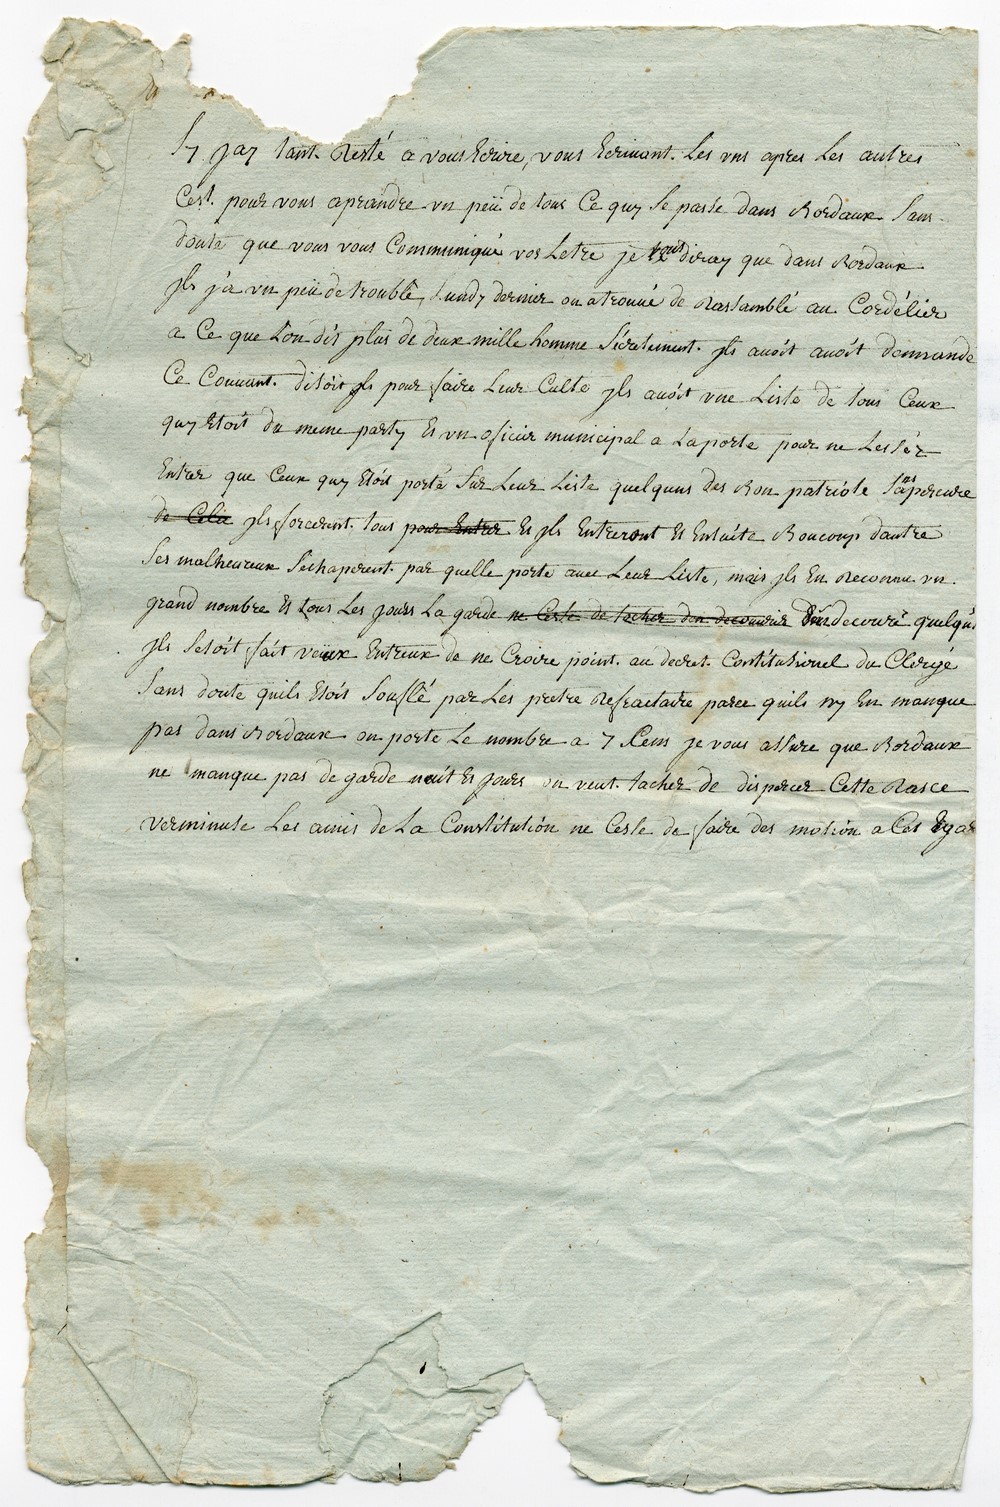 Sy jay tant Resté a vous Ecrire, vous Ecrivant Les vns apres Les autres
Cest pour vous aprandre vn peü de tous Ce quy Se passe dans Bordaux Sans
doute que vous vous Communiqué vos Letre je vous diray que dans Bordaux
jls j'a vn peü de trouble, Lundy dernier on a trouvé de Rassamblé au Cordélier
a Ce que Lon dit plus de deux mille homme Sécretement jls avoit avoit demandé
Ce Couvant disoit jls pour faire Leur Culte jls avoit vne Liste de tous Ceux
quy Etoit du meme party Et vn oficier municipal a La porte pour ne Lessér
Entrer que Ceux quy Etoit porté Sur Leur Liste quelquns des Bon patriote Sapercure
de Cela jls forcerent tous pour Entrer Et jls Entreront Et Ensuite Boucoup dautre
Ses malheureux Séchaperent par quelle porte avec Leur Liste, mais jls En Reconnu vn
grand nombre Et tous Les jours La garde ne Cesse de tacher den decouvrir En decouvre quelqu
jls Setoit fait veux Entreux de ne Croire point au decret Constitutionel du Clergé
Sans doute quils Etoit Souflé par Les pretre Refractaire parce quils ny En manque
pas dans Bordaux on porte Le nombre a 7 Cens je vous assure que Bordaux
ne manque pas de garde nuit Et jours on veut tacher de disperser Cette Rasce
verminuse Les amis de La Constitution ne Cesse de faire des motion a Cet Egar